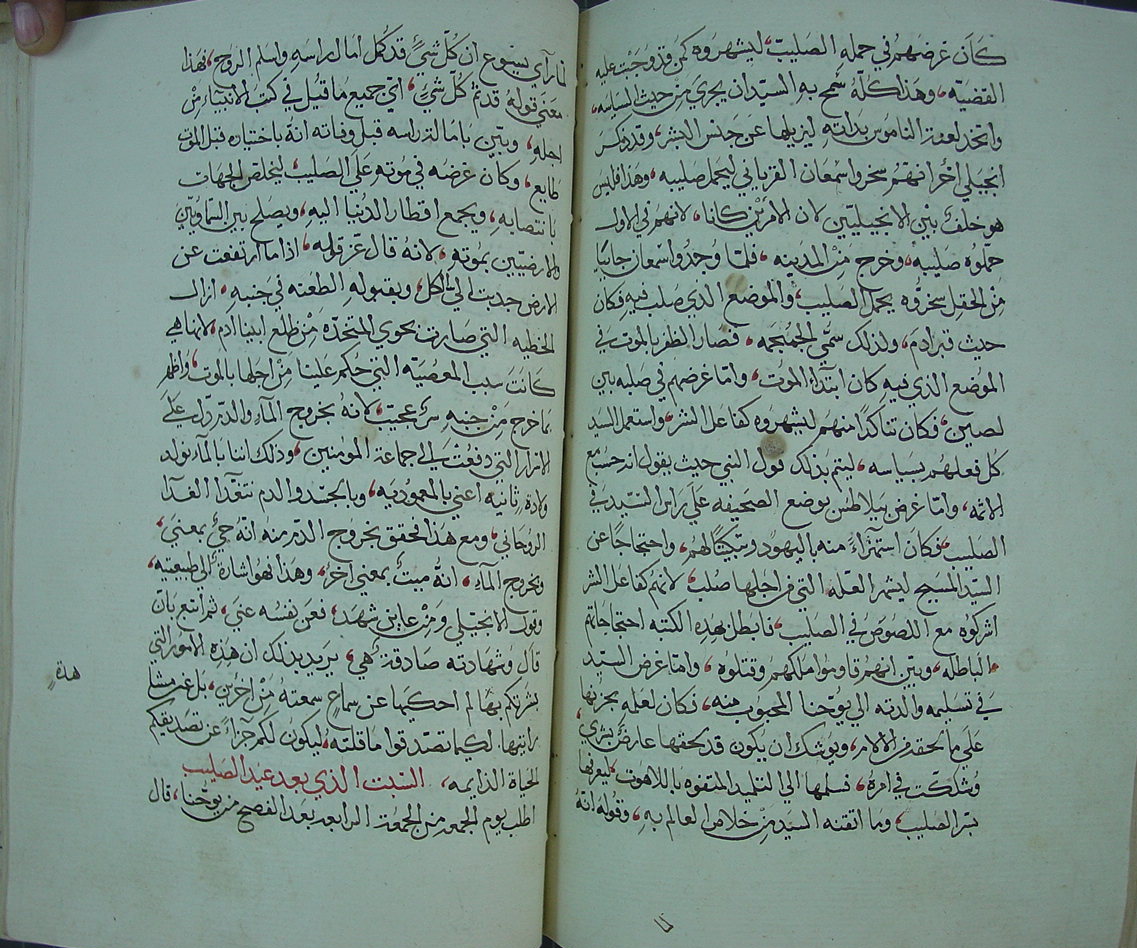 كان غرضهم في حمله الصليب، ليشهروه كمن قد وجبت عليه
القضية، وهذا كله سمح به السيد ان يجري من حيث السياسه،
واتخذ لعنة الناموس بذاته ليزيلها عن جنس البشر، وقد ذكر
انجيلي أخر انهم سخروا سمعان القرياني ليحمل صليبه، وهذا فليس
هو خلف بين الانجيليين لان الامرين كانا، لانهم في الاول
حملوه صليبه، وخرج من المدينه، فلما وجدوا سمعان جائيًا
من الحقل سخروه يحمل الصليب، والموضع الذي صلب فيه فكان
حيث قبر ادم، ولذلك سمي الجمجمه، فصار الظفر بالموت في
الموضع الذي فيه كان ابتداء الموت، واما غرضهم في صلبه بين
لصين، فكان تأكدًا منهم ليشهروه كفاعل الشر، واستعمل السيد
كل فعلهم بسياسه، ليتم بذلك قول النبي حيث يقول انه حسب مع
الاثمه، واما غرض بيلاطس بوضع الصحيفه على راس السيد في
الصليب، فكان استهزآءً منه باليهود وتبكيتًا لهم، واحتجاجًا عن
السيد المسيح ليشهر العله التي من اجلها صلب، لانهم كفاعل الشر
اشركوه مع اللصوص في الصليب، فابطل بهذه الكتبه احتجاجاتهم
الباطله، وبين انهم قاوموا ملكهم وقتلوه، واما غرض السيد
في تسليمه والدته الى يوحنا المحبوب منه، فكان لعلمه بحزنها
على ما لحقه من الالام، ويوشك ان يكون قد لحقها عارض بشري،
وشككت في امره، فسلمها الى التلميد المتفوه باللاهوت، ليعرفها
بسر الصليب، وما اتقنه السيد من خلاص العالم به، وقوله انه
لما رآي يسوع ان كل شيء قد كمل امال راسه واسلم الروح، فهذا
معنى قوله قد تم كل شيء، اي جميع ما قيل في كتب الانبيآء من
اجله، وبين باماله راسه قبل وفاته انه باختياره قبل الموت
طايع، وكان غرضه في موته على الصليب، ليخلص الجهات
بانتصابه، ويجمع اقطار الدنيا اليه، ويصلح بين السماويين
والارضيين بموته، لانه قال عز قوله، اذا ما ارتفعت عن
الارض جدبت الي الكل، وبقبوله الطعنه في جنبه، ازال
الخطيه التي صارت بحوي المتخذه من ظلع ابينا ادم، لانها هي
كانت سبب المعصية التي حكم علينا من اجلها بالموت، واظهر
بما خرج من جنبه سر عجيب، لانه بخروج المآء والدم دل على
الاسرار التي دفعت الى جماعة المومنين، وذلك اننا بالمآء نولد
ولادة ثانيه اعني بالمعموديه، وبالجسد والدم نتغدا الغدآ
الروحاني، ومع هذا الحقق بخروج الدم منه انه حيّ بمعنى،
وبخروج المآء، انه ميت بمعنى آخر، وهذا هو اشارة الى طبيعتيه،
وقول الانجيلي ومن عاين شهد، فعن نفسه عنى، ثم اتبع بان
قال وشهادته صادقة هي، يريد بذلك ان هذه الامور التي
بشرتكم بها لم احكيها عن سماع سمعته من اخرين، بل عن مشا
هدة
راتيها، لكيما تصدقوا ما قلته، ليكون لكم جزآءً عن تصديقكم
الحياة الدايمه، السبت الذي بعد عيد الصليب
اطلب يوم الجمعه من الجمعة الرابعه بعد الفصح من يوحنا، قال